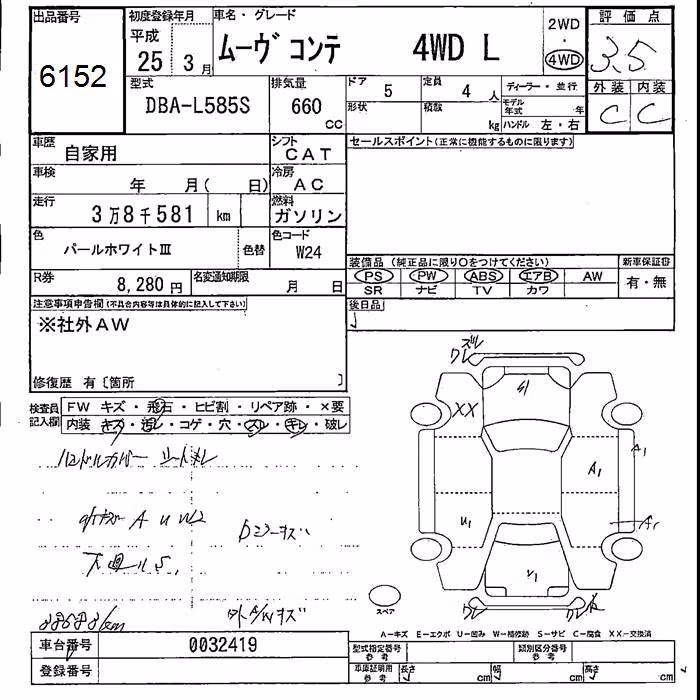 出品番号 6152
初度登録年月 平成 25年 3月
車名・グレード ムーヴ コンテ 4WD L
2WD ・ 4WD
評価点 3.5
外装 内装
C C
型式 DBA-L585S
排気量 660 CC
ドア 5
定員 4人
形状
積載 kg
ディーラー・並行
モデル年式 年
ハンドル 左・右
車歴 自家用
シフト CAT
セールスポイント(正常に機能するものに限ります)
車検 年 月( 日)
冷房 AC
走行 3万8千581 km
燃料 ガソリン
色 パールホワイトⅢ 色替
色コード W24
装備品 (純正品に限り○をつけてください)
新車保証書 有・無
PS PW ABS エアB AW
SR ナビ TV カワ
R券 8,280円
名変通知期限 月 日
後日品
注意事項申告欄(不具合内容等は具体的に記入して下さい)
※社外AW
修復歴 有〔箇所 〕
検査員記入欄
FW キズ・飛石・ヒビ割・リペア跡・×要
内装 キズ・汚レ・コゲ・穴・スレ・キレ・破レ
ハンドルカバー シートキレ
A U W2
ワレ ズレ
XX
A1
A1
U1
ワレ
スペア
A-キズ E-エクボ U-凹み W-補修跡 S-サビ C-腐食 XX-交換済
車台番号 0032419
登録番号
型式指定番号 参考
類別区分番号 参考
車庫証明用 参考
長さ cm 幅 cm 高さ cm